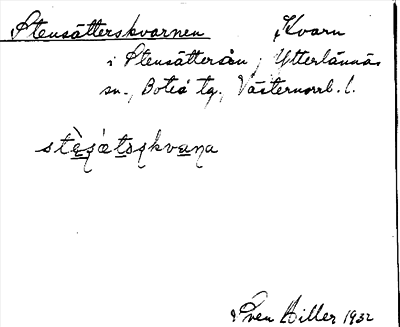 Stensätterskvarnen Kvarn
i Stensätterån, Ytterlännäs
sn., Boteå tg., Västernorrl. l.
Sven Hiller 1932